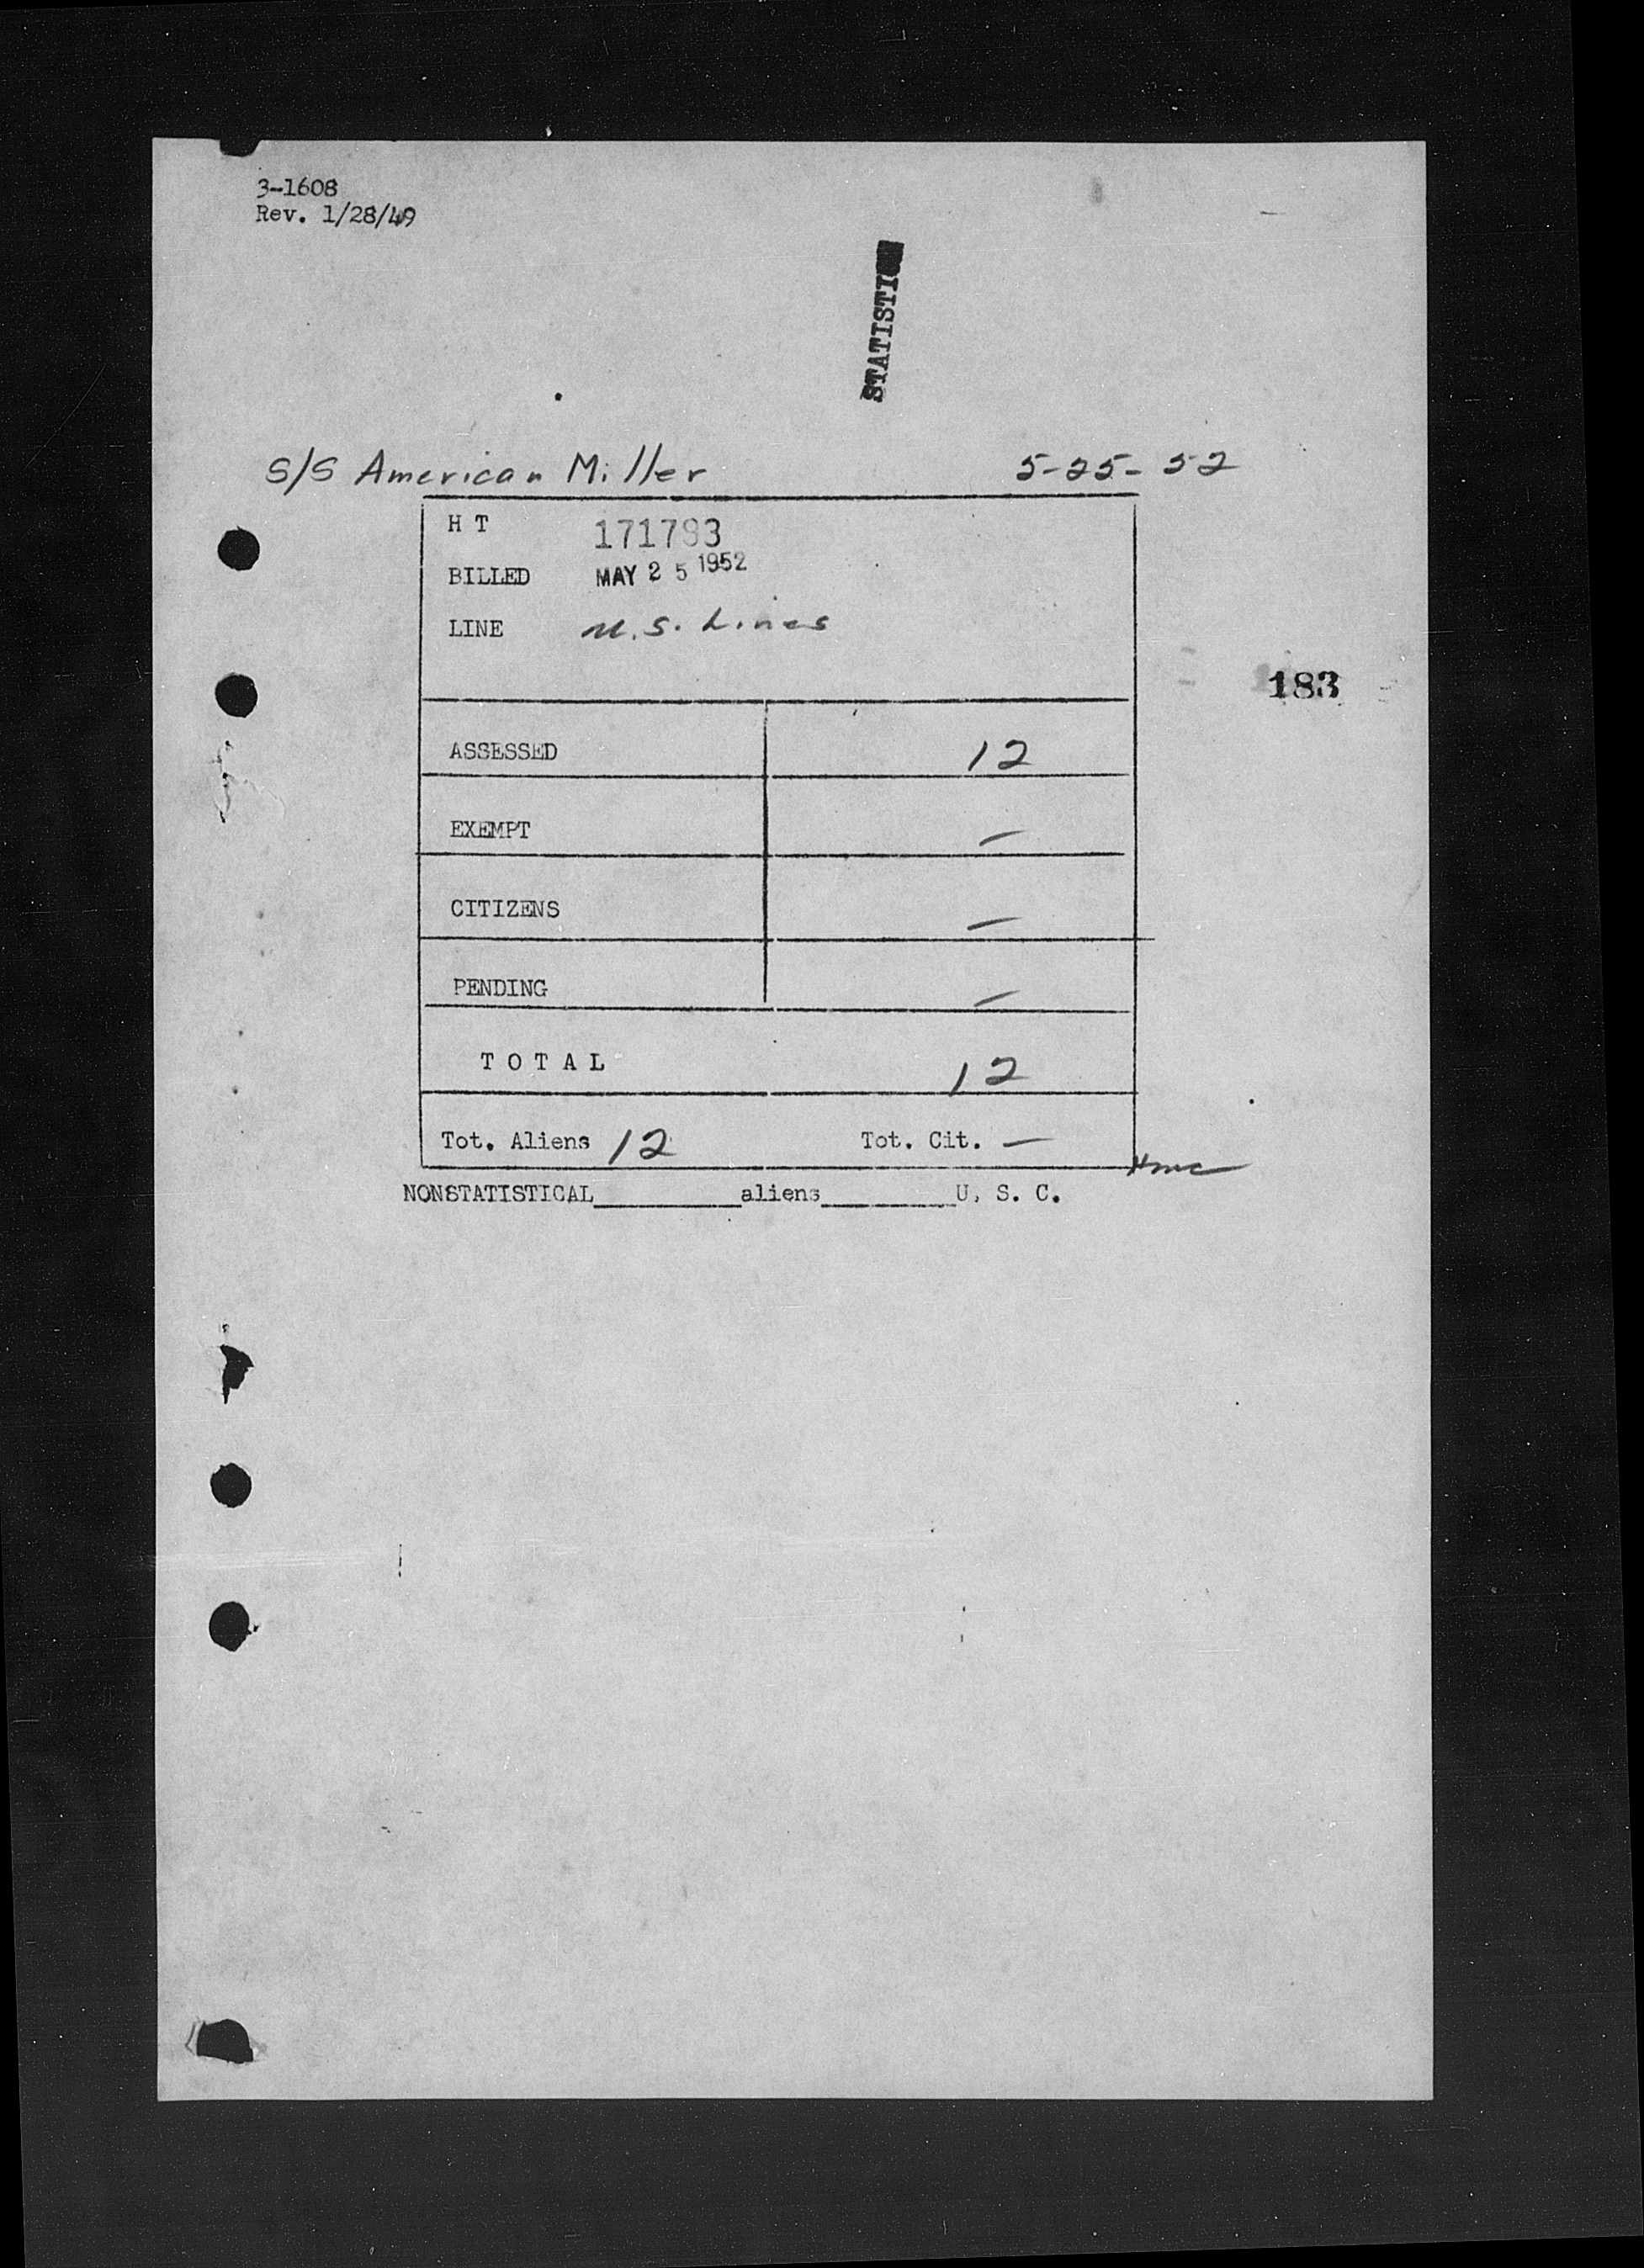 3-1608
Rev. 1/28/49
S/S American Miller 5-25-52
H T 171793
BILLED MAY 25 1952
LINE U.S. Lines
183
ASSESSED 12
EXEMPT —
CITIZENS —
PENDING —
T O T A L 12
Tot. Aliens 12 Tot. Cit. —
NONSTATISTICAL aliens U. S. C.